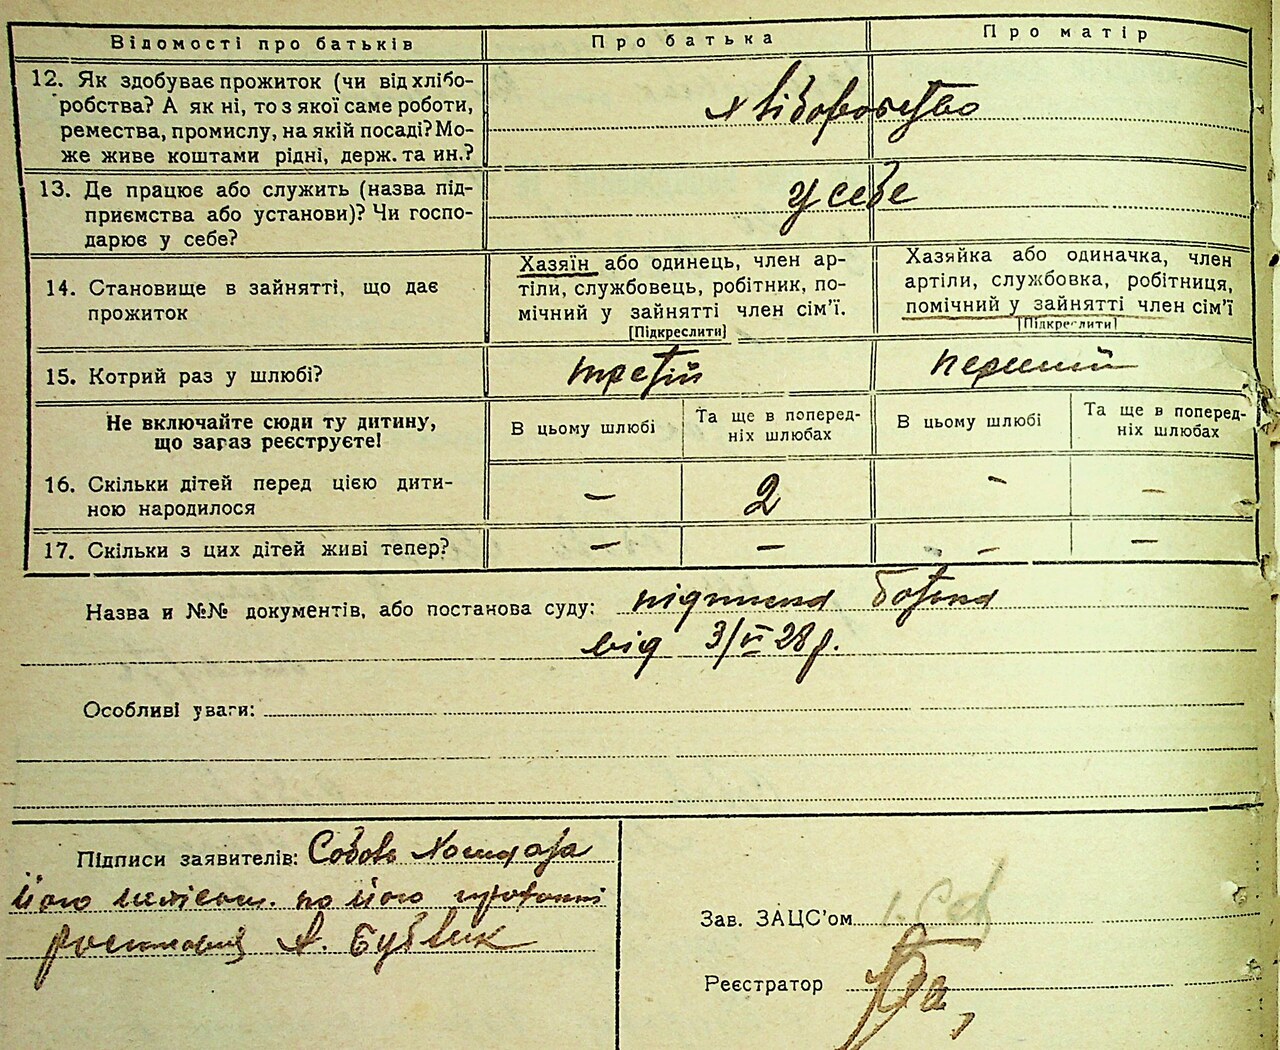 Відомості про батьків Про батька Про матір
12. Як здобуває прожиток (чи від хлібо-
робства? А як ні, то з якої саме роботи,
ремества, промислу, на якій посаді? Мо-
же живе коштами рідні, держ. та ин.?
хліборобство
13. Де працює або служить (назва під-
приємства або установи)? Чи госпо-
дарює у себе?
у себе
14. Становище в зайнятті, що дає
прожиток
Хазяїн або одинець, член ар-
тіли, службовець, робітник, по-
мічний у зайнятті член сім'ї.
[Підкреслити]
Хазяйка або одиначка, член
артіли, службовка, робітниця,
помічний у зайнятті член сім'ї
[Підкреслити]
15. Котрий раз у шлюбі? третій перший
Не включайте сюди ту дитину,
що зараз реєструєте!
В цьому шлюбі
Та ще в поперед-
ніх шлюбах
В цьому шлюбі
Та ще в поперед-
ніх шлюбах
16. Скільки дітей перед цією дити-
ною народилося
– 2 – –
17. Скільки з цих дітей живі тепер? – – – –
Назва и №№ документів, або постанова суду: підписка батька
від 3/VI 28 р.
Особливі уваги:
Підписи заявителів:
його по його
А.
Зав. ЗАЦС'ом
Реєстратор